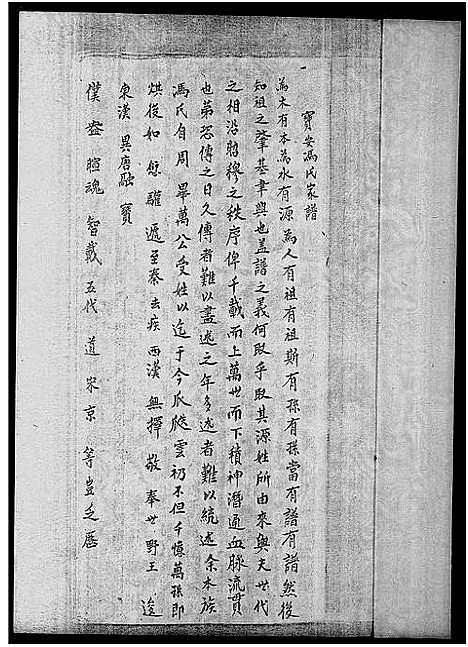 寶安馮氏家譜
為木有本為水有源為人有祖有祖斯有孫有孫當有譜有譜然後
知祖之肇基聿興也盖譜之義何取乎取其源姓所由來與夫世代
之相沿昭穆之秩序俾千載而上萬世而下精神潛通血脉流貫
也弟恐傳之日久傳者難以盡述之年多述者難以統述余本族
馮氏自周畢萬公受姓以迄于今瓜瓞雲礽不但千億萬孫即
烘後如 驩遞至秦去疾西漢無擇敬奉世野王逡
東漢異唐融寶
僕盎暄魂智戴五代道宋京等豈乏歷